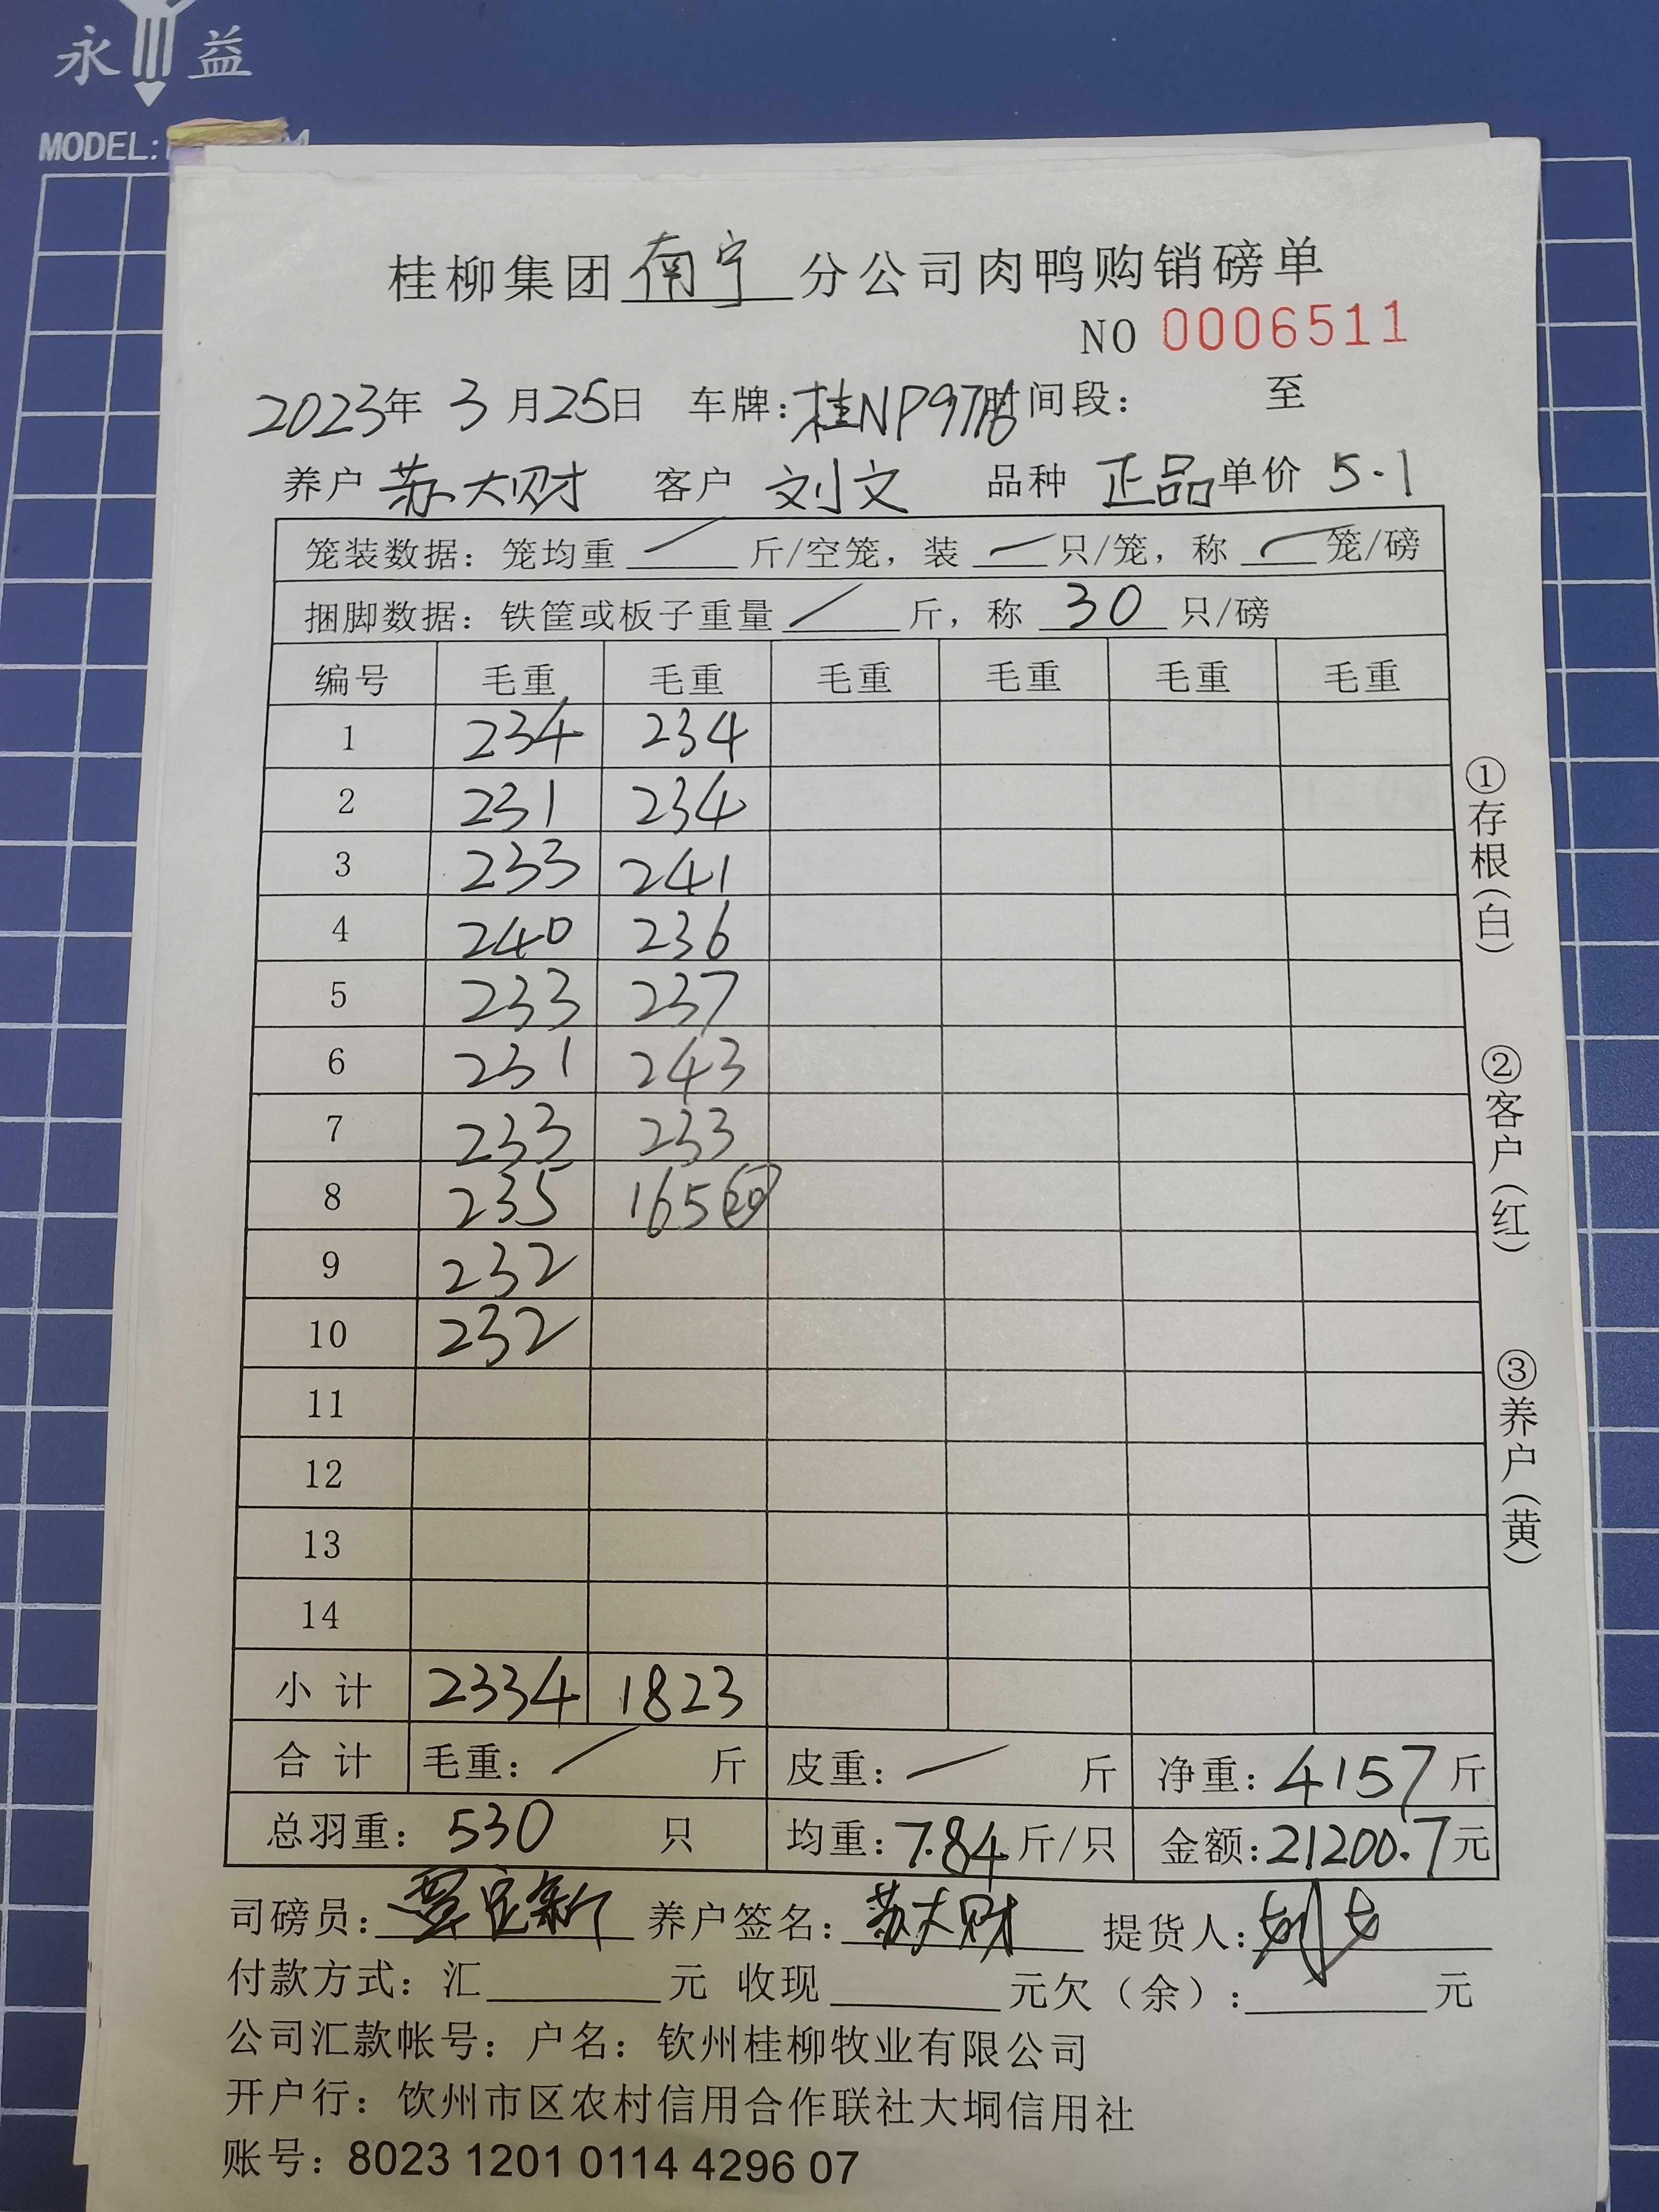 永益
MODEL:
桂柳集团南宁分公司肉鸭购销磅单
NO 0006511
2023年 3月25日 车牌:桂NP9776时间段: 至
养户 苏大财 客户 刘文 品种 正品 单价 5.1
笼装数据: 笼均重 / 斤/空笼, 装 / 只/笼, 称 / 笼/磅
捆脚数据: 铁筐或板子重量 / 斤, 称 30 只/磅
编号 毛重 毛重 毛重 毛重 毛重 毛重
1 234 234
2 231 234
3 233 241
4 240 236
5 233 237
6 231 243
7 233 233
8 235 165 20
9 232
10 232
11
12
13
14
小计 2334 1823
合计 毛重: / 斤 皮重: / 斤 净重: 4157 斤
总羽重: 530 只 均重: 7.84 斤/只 金额: 21200.7 元
司磅员: 养户签名: 苏大财 提货人:
付款方式: 汇 元 收现 元欠(余): 元
公司汇款帐号: 户名: 钦州桂柳牧业有限公司
开户行: 钦州市区农村信用合作联社大垌信用社
账号: 8023 1201 0114 4296 07
①存根(白)
②客户(红)
③养户(黄)